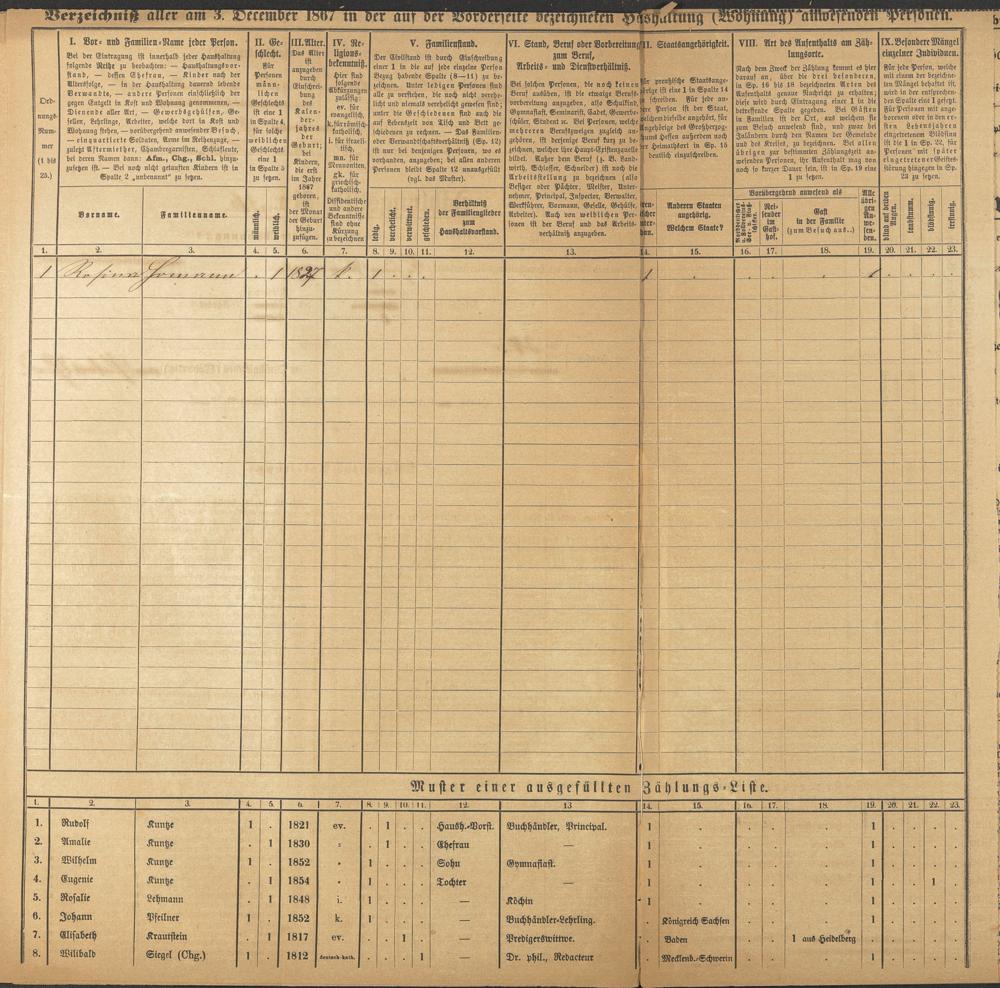 Verzeichniß aller am 3. December 1867 in der auf der Vorderseite bezeichneten Haushaltung (Wohnung) anwesenden Personen.
Ord-
nungs-
Num-
mer
(1 bis
25.)
I. Vor- und Familien-Name jeder Person.
Bei der Eintragung ist innerhalb jeder Haushaltung
folgende Reihe zu beobachten: — Haushaltungsvor-
stand, — dessen Ehefrau, — Kinder nach der
Altersfolge, — in der Haushaltung dauernd lebende
Verwandte, — andere Personen einschließlich der
gegen Entgelt in Kost und Wohnung genommenen, —
Dienende aller Art, — Gewerbsgehülfen, Ge-
sellen, Lehrlinge, Arbeiter, welche dort in Kost und
Wohnung stehen, — vorübergehend anwesender Besuch,
— einquartierte Soldaten, Arme im Reihenzuge, —
zuletzt Aftermiether, Chambregarnisten, Schlafleute,
bei deren Namen dann: Afm., Chg., Schl. hinzu-
zusetzen ist. — Bei noch nicht getauften Kindern ist in
Spalte 2 „unbenannt" zu setzen.
Vorname. Familienname.
II. Ge-
schlecht.
Für
Personen
männ-
lichen
Geschlechts
ist eine 1
in Spalte 4,
für solche
weiblichen
Geschlechts
eine 1
in Spalte 5
zu setzen.
männlich. weiblich.
III. Alter.
Das Alter
ist
anzugeben
durch
Einschrei-
bung
des
Kalen-
der-
jahres
der
Geburt;
bei
Kindern,
die erst
im Jahre
1867
geboren,
ist
der Monat
der Geburt
hinzu-
zufügen.
IV. Re-
ligions-
bekenntniß.
Hier sind
folgende
Abkürzungen
zulässig:
ev. für
evangelisch.
k. für römisch-
katholisch.
i. für israeli-
tisch.
mn. für
Mennoniten.
gk. für
griechisch-
katholisch.
Dissidentische
und andere
Bekenntnisse
sind ohne
Kürzung
zu bezeichnen
V. Familienstand.
Der Civilstand ist durch Einschreibung
einer 1 in die auf jede einzelne Person
Bezug habende Spalte (8—11) zu be-
zeichnen. Unter ledigen Personen sind
alle zu verstehen, die noch nicht verehe-
licht und niemals verehelicht gewesen sind;
unter die Geschiedenen sind auch die
auf Lebenszeit von Tisch und Bett ge-
schiedenen zu rechnen. — Das Familien-
oder Verwandtschaftsverhältniß (Sp. 12)
ist nur bei denjenigen Personen, wo es
vorhanden, anzugeben; bei allen anderen
Personen bleibt Spalte 12 unausgefüllt
(vgl. das Muster).
ledig. verehelicht. verwittwet. geschieden.
Verhältniß
der Familienglieder
zum
Haushaltsvorstand.
VI. Stand, Beruf oder Vorbereitung
zum Beruf,
Arbeits- und Dienstverhältniß.
Bei solchen Personen, die noch keinen
Beruf ausüben, ist die etwaige Berufs-
vorbereitung anzugeben, also Schulkind,
Gymnasiast, Seminarist, Cadet, Gewerbe-
schüler, Student 2c. Bei Personen, welche
mehreren Berufszweigen zugleich an-
gehören, ist derjenige Beruf kurz zu be-
zeichnen, welcher ihre Haupt-Existenzquelle
bildet. Außer dem Beruf (z. B. Land-
wirth, Schlosser, Schneider) ist noch die
Arbeitsstellung zu bezeichnen (also
Besitzer oder Pächter, Meister, Unter-
nehmer, Principal, Inspector, Verwalter,
Werkführer, Vormann, Geselle, Gehülfe,
Arbeiter). Auch von weiblichen Per-
sonen ist der Beruf und das Arbeits-
verhältniß anzugeben.
II. Staatsangehörigkeit.
für preußische Staatsange-
hörige ist eine 1 in Spalte 14
schreiben. Für jede an-
dere Person ist der Staat,
welchem dieselbe angehört, für
Angehörige des Großherzog-
thums Hessen außerdem noch
der Heimathsort in Sp. 15
deutlich einzuschreiben.
Anderen Staaten
angehörig.
Welchem Staate?
VIII. Art des Aufenthalts am Zäh-
lungsorte.
Nach dem Zweck der Zählung kommt es hier
darauf an, über die drei besonderen,
in Sp. 16 bis 18 bezeichneten Arten des
Aufenthalts genaue Nachricht zu erhalten;
diese wird durch Eintragung einer 1 in die
betreffende Spalte gegeben. Bei Gästen
in Familien ist der Ort, aus welchem sie
zum Besuch anwesend sind, und zwar bei
Inländern durch den Namen der Gemeinde
und des Kreises, zu bezeichnen. Bei allen
übrigen zur bestimmten Zählungszeit an-
wesenden Personen, ihr Aufenthalt mag von
noch so kurzer Dauer sein, ist in Sp. 19 eine
1 zu setzen.
Vorübergehend anwesend als
Rei-
sender
im
Gast-
hof.
Gast
in der Familie
(zum Besuch aus..)
Alle
übri-
gen
An-
we-
sen-
den.
IX. Besondere Mängel
einzelner Individuen.
Für jede Person, welche
mit einem der bezeichne-
ten Mängel behaftet ist,
wird in der entsprechen-
den Spalte eine 1 gesetzt.
Für Personen mit ange-
borenem oder in den er-
sten Lebensjahren
eingetretenem Blödsinn
ist die 1 in Sp. 22, für
Personen mit später
eingetretener Geistes-
störung hingegen in Sp.
23 zu setzen.
blind auf beiden Augen. taubstumm. blödsinnig. irrsinnig.
1. 2. 3. 4. 5. 6. 7. 8. 9. 10. 11. 12. 13. 14. 15. 16. 17. 18. 19. 20. 21. 22. 23.
1 Rosina Homann . 1 1827 k. 1 . . . 1 . . . . 1 . . . .
Muster einer ausgefüllten Zählungs-Liste.
1. 2. 3. 4. 5. 6. 7. 8. 9. 10. 11. 12. 13 14. 15. 16. 17. 18. 19. 20. 21. 22. 23.
1. Rudolf Kuntze 1 . 1821 ev. . 1 . . Haush.-Vorst. Buchhändler, Principal. 1 . . . . 1 . . . .
2. Amalie Kuntze . 1 1830 " . 1 . . Ehefrau — 1 . . . . 1 . . . .
3. Wilhelm Kuntze 1 . 1852 " 1 . . . Sohn Gymnasiast. 1 . . . . 1 . . . .
4. Eugenie Kuntze . 1 1854 " 1 . . . Tochter — 1 . . . . 1 . . 1 .
5. Rosalie Lehmann . 1 1848 i. 1 . . . — Köchin 1 . . . . 1 . . . .
6. Johann Pfeilner 1 . 1852 k. 1 . . . — Buchhändler-Lehrling. . Königreich Sachsen . . . 1 . . . .
7. Elisabeth Krautstein . 1 1817 ev. . . 1 . — Predigerswittwe. . Baden . . 1 aus Heidelberg . . . . .
8. Wilibald Siegel (Chg.) 1 . 1812 deutsch-kath. . . . 1 — Dr. phil., Redacteur . Mecklenb.-Schwerin . . . 1 . . . .